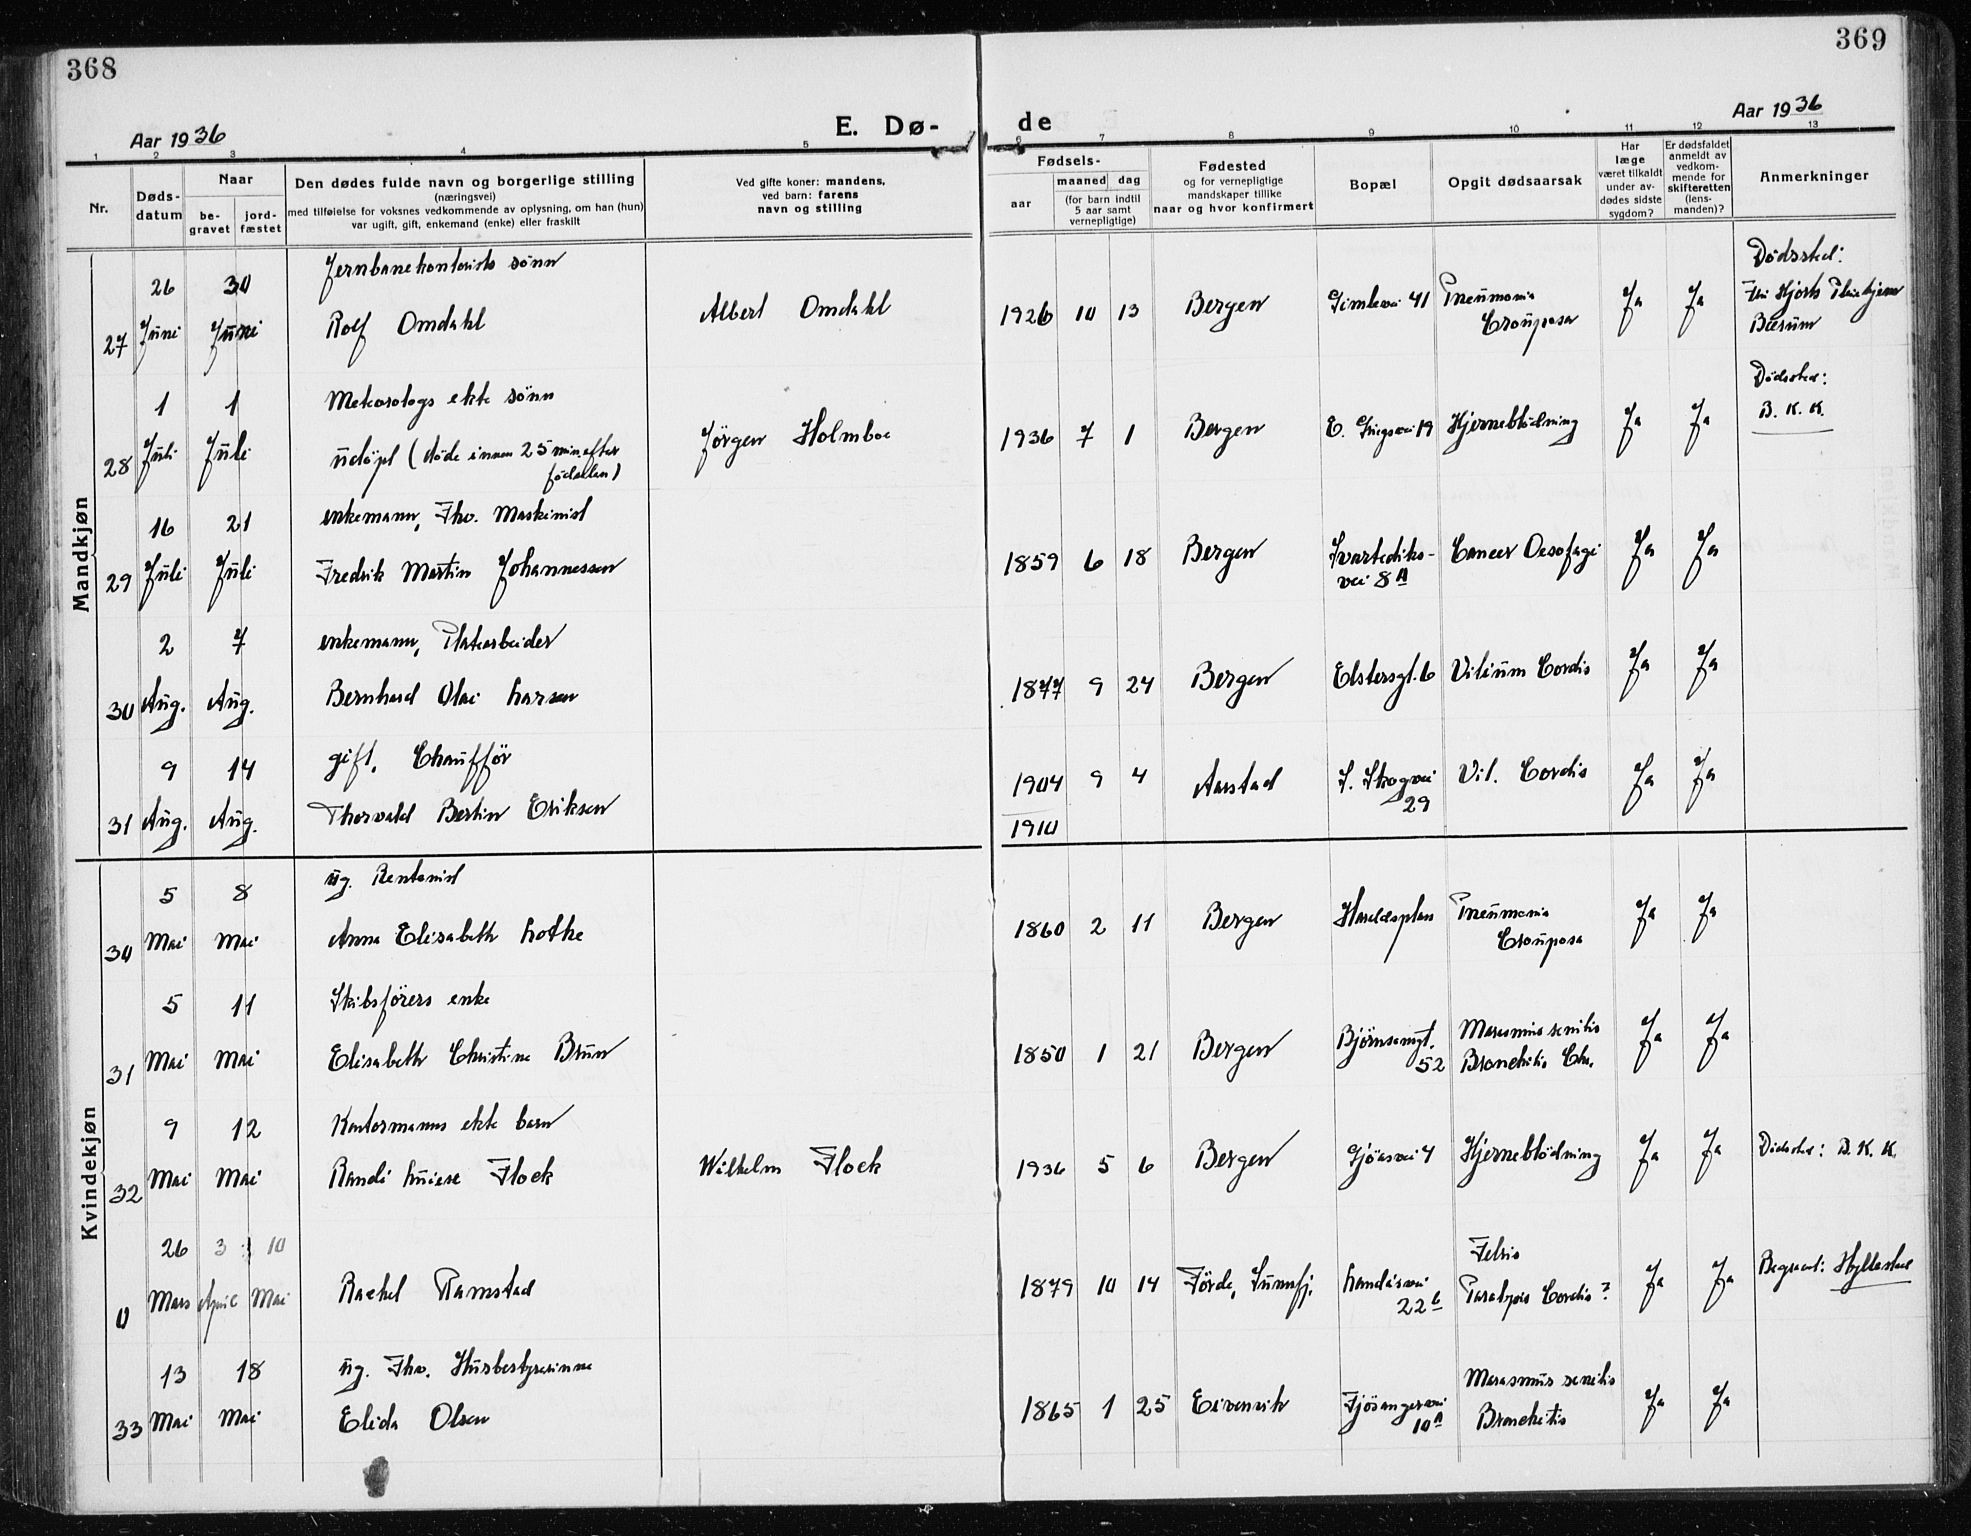 368
369
Aar 1936
E. Dø-
de
Aar 1936
1 2 3 4 5 6 7 8 9 10 11 12 13
Nr.
Døds-
datum
Naar
be-
gravet
jord-
fæstet
Den dødes fulde navn og borgerlige stilling
(næringsvei)
med tilføielse for voksnes vedkommende av oplysning, om han (hun)
var ugift, gift, enkemand (enke) eller fraskilt
Ved gifte koner: mandens,
ved barn: farens
navn og stilling
Fødsels-
aar
maaned dag
(for barn indtil
5 aar samt
vernepligtige)
Fødested
og for vernepligtige
mandskaper tillike
naar og hvor konfirmert
Bopæl
Opgit dødsaarsak
Har
læge
været tilkaldt
under av-
dødes sidste
sygdom?
Er dødsfaldet
anmeldt av
vedkom-
mende for
skifteretten
(lens-
manden)?
Anmerkninger
Mandkjøn
27
26 Juni
30 Juni
Jernbanekontorists sönn
Rolf Omdahl
Albert Omdahl
1926 10 13
Bergen
Gimlevei 41
Pneumonia
Crouposa
Ja
Ja
Dödssted:
Hjorts Pleiehjem
Bærum
28
1 Juli
1 Juli
Meteorologs ekte sönn
udöpt (döde innen 25 min. efter
födselen)
Jörgen Holmboe
1936 7 1
Bergen
E. Griegsvei 19
Hjerneblödning
Ja
Ja
Dödssted:
B. K. K.
29
16 Juli
21 Juli
enkemann, Fhv. Maskinist
Fredrik Martin Johannessen
1859 6 18
Bergen
Svartediks-
vei 8 A
Cancer Oesofagi
Ja
Ja
30
2 Aug.
7 Aug.
enkemann, Platearbeider
Bernhard Olai Larsen
1877 9 24
Bergen
Elstersgt. 6
Vitium Cordis
Ja
Ja
31
9 Aug.
14 Aug.
gift, Chaufför
Thorvald Bertin Eriksen
1904 9 4
1910
Aarstad
S. Skogvei
29
Vit. Cordis
Ja
Ja
Kvindekjøn
30
5 Mai
8 Mai
ug. Rentenist
Anna Elisabeth Lothe
1860 2 11
Bergen
Haraldsplass
Pneumonia
Crouposa
Ja
Ja
31
5 Mai
11 Mai
Skibsförers enke
Elisabeth Christine Brun
1850 1 21
Bergen
Björnsonsgt.
52
Marasmus senilis
Bronchitis Chr.
Ja
Ja
32
9 Mai
12 Mai
Kontormanns ekte barn
Randi Luise Flock
Wilhelm Flock
1936 5 6
Bergen
Gjöavei 4
Hjerneblödning
Ja
Ja
Dödssted: B. K. K.
0
26 Mars
3 April
10 Mai
Rachel Ramstad
1879 10 14
Förde, Sunnfj.
Landåsvei
22 b
Paralysis Cordis?
Ja
Ja
Begravet: Hyllestad
33
13 Mai
18 Mai
ug. Fhv. Husbestyrerinne
Elida Olsen
1865 1 25
Eivenvik
Fjösangervei
10 A
Marasmus senilis
Bronchitis
Ja
Ja